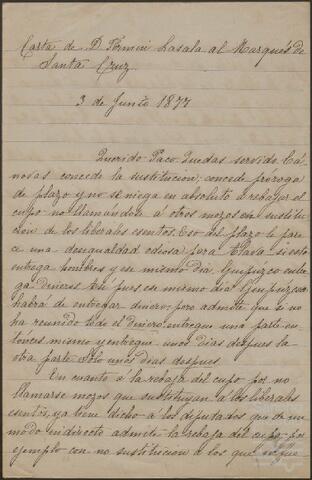 Carta de D. Fermin Lasala al Marqués de
Santa Cruz.
3 de Junio 1877
Querido Paco: Quedas servido. Cá-
novas concede la sustitucion; concede próroga
de plazo y no se niega en absoluto á rebajar el
cupo no llamandose á otros mozos en sustitu-
cion de los liberales esentos. Eso del plazo le pare
ce una desigualdad odiosa para Alava si esta
entrega hombres y ese mismo dia Guipuzcoa entre
ga dinero. En pues ese mismo dia Guipuzcoa
habrá de entregar dinero, pero admite que si no
ha reunido todo el dinero, entregue una parte en-
tonces mismo y entregue unos dias despues la
otra parte. Solo unos dias despues.
En cuanto á la rebaja del cupo por no
llamarse mozos que sustituyan á los liberales
esentos, ya bien dicho á los diputados que de un
modo indirecto admite la rebaja del cupo, por
ejemplo con no sustitucion á los que